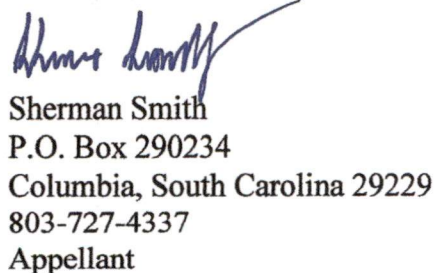 Sherman Smith
P.O. Box 290234
Columbia, South Carolina 29229
803-727-4337
Appellant